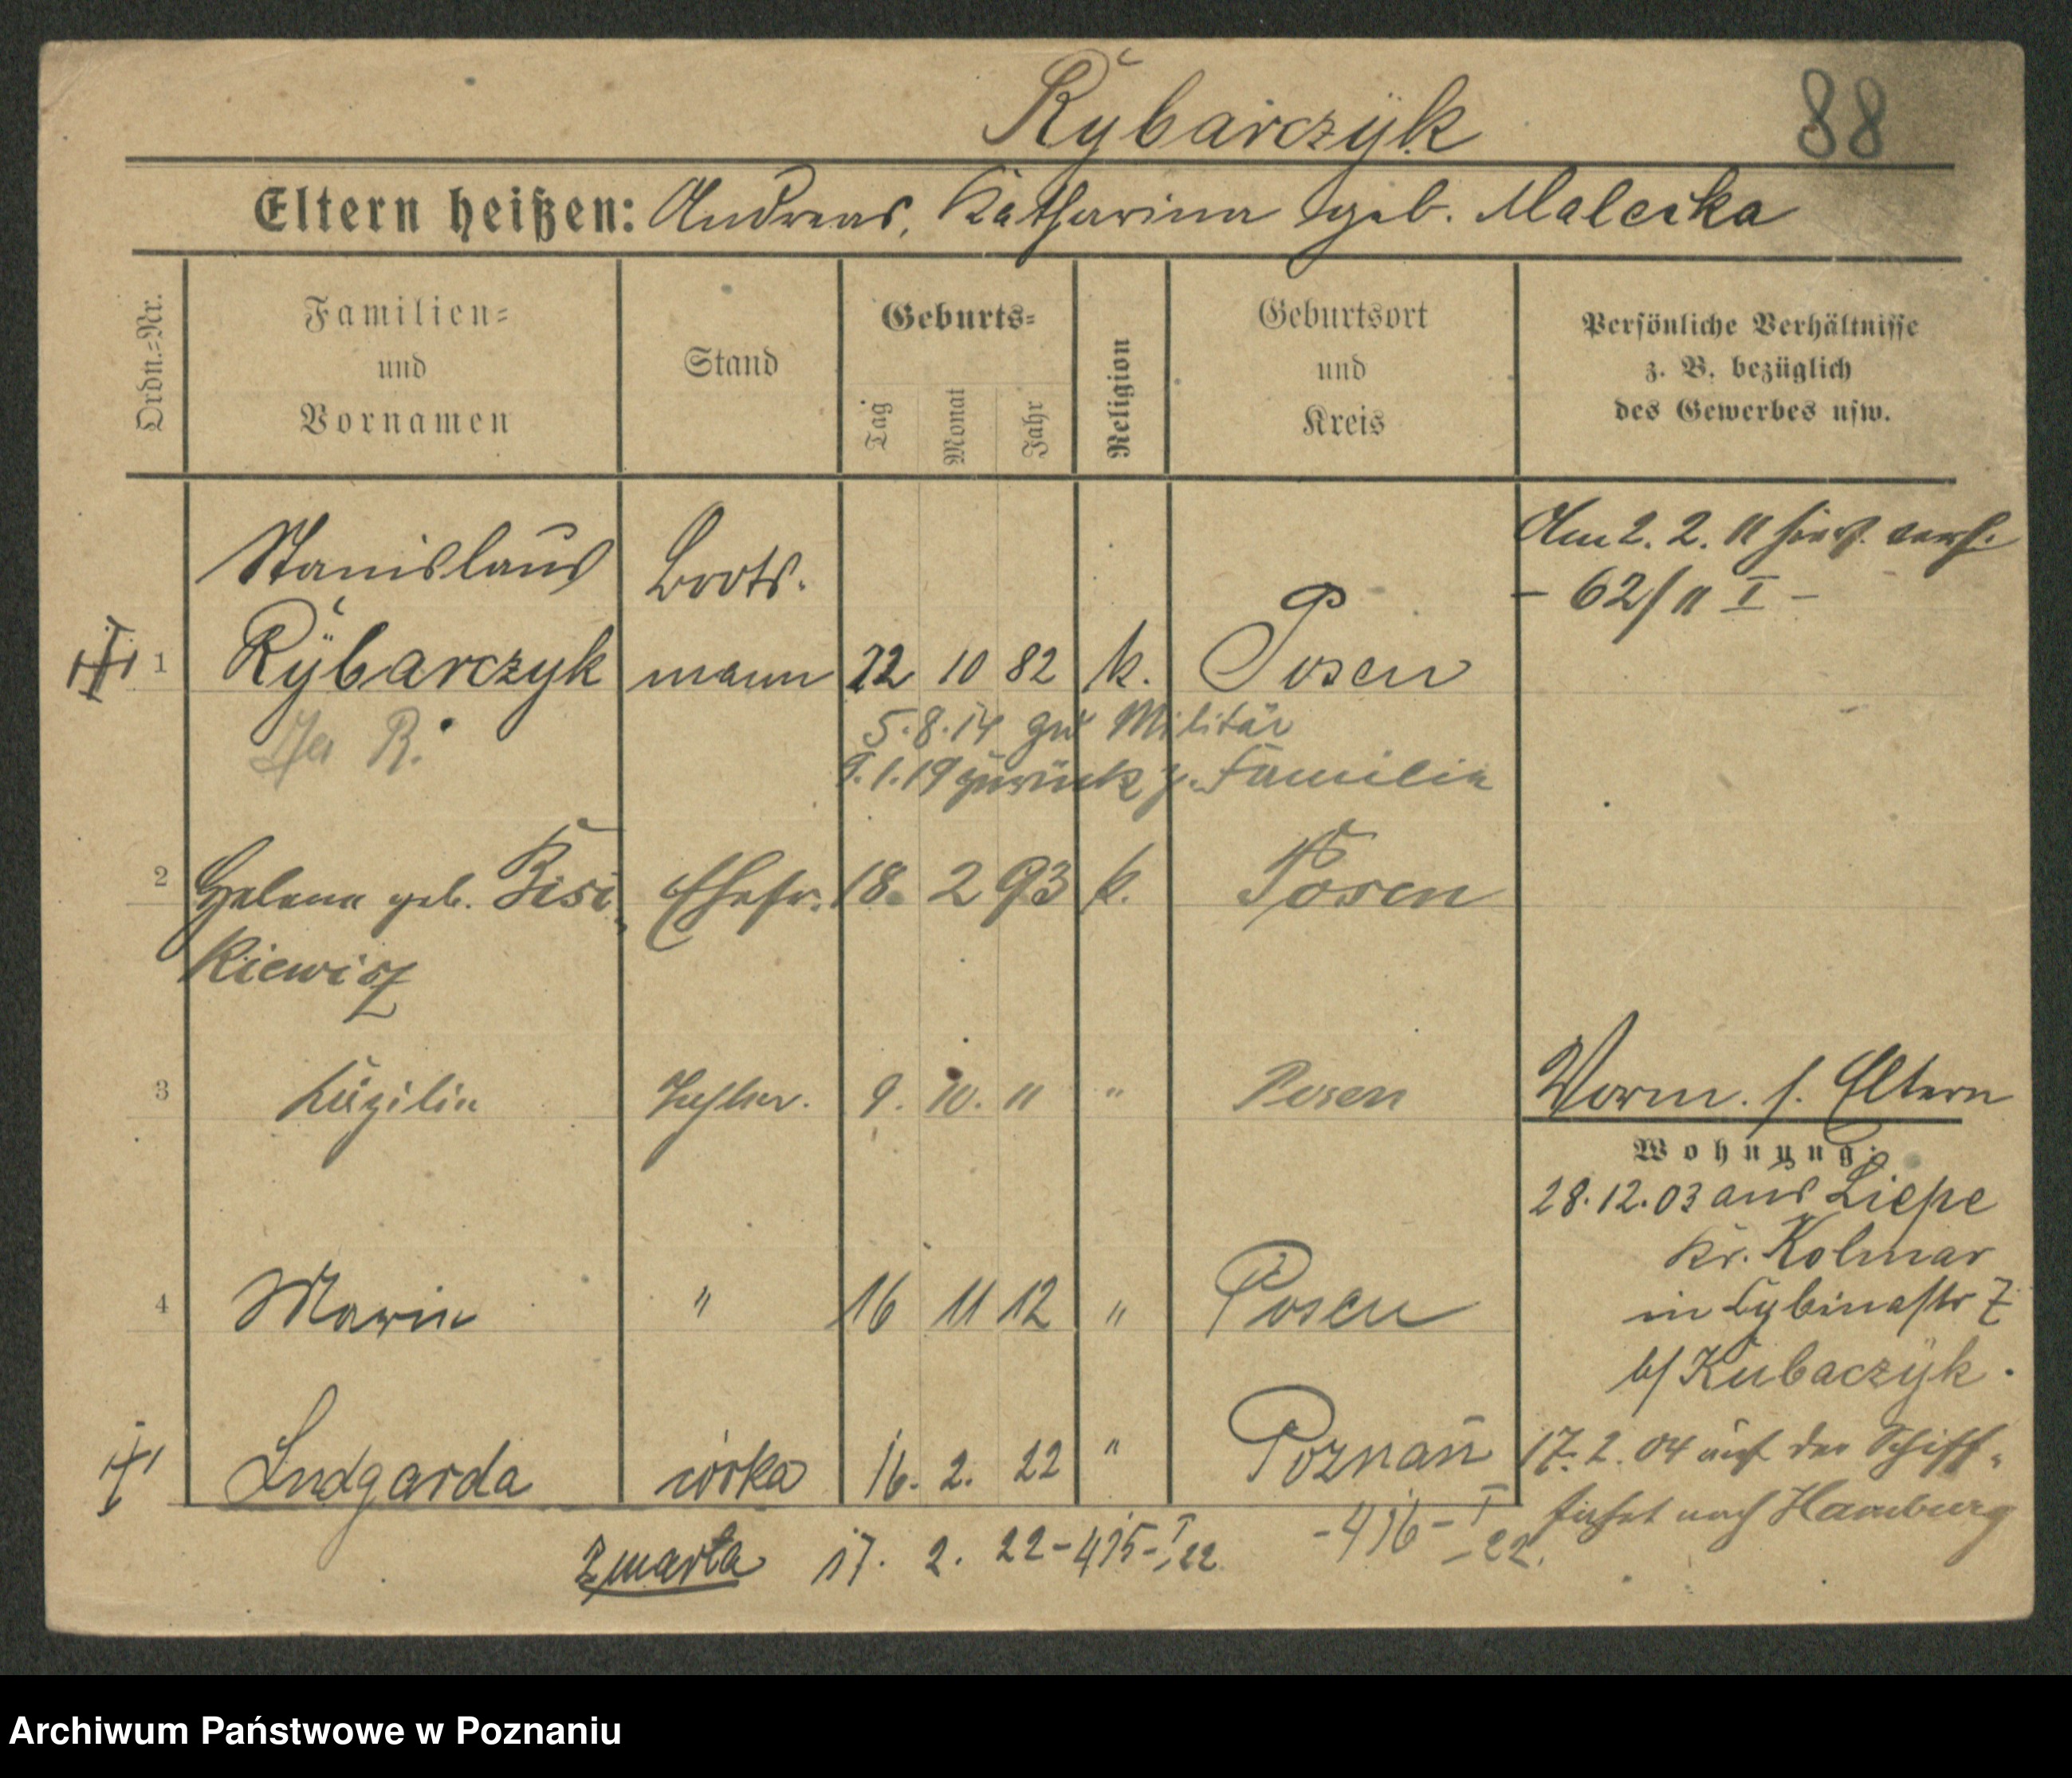 Rybarczyk 88
Eltern heißen: Andreas, Katharina geb. Malecka
Ordn.=Nr.
Familien=
und
Vornamen
Stand
Geburts=
Tag
Monat
Jahr
Religion
Geburtsort
und
Kreis
Persönliche Verhältnisse
z. B. bezüglich
des Gewerbes usw.
Stanislaus Boots-
1 Rybarczyk mann 22 10 82 k. Posen
R.
5.8.14 zu Militär
9.1.19 zurück z. Familie
2 Helena geb. Bisi- Ehefr. 18. 2 93 k. Posen
kiewicz
3 Zäzilie Tochter. 9. 10. 11 " Posen
4 Marie " 16 11 12 " Posen
Ludgarda córka 16. 2. 22 " Poznań
Zmarła 17. 2. 22 - 415-I,22
-416-I
-22.
Am 2. 2. 11 verh.
- 62/11 I -
Vorm. s. Eltern
Wohnung:
28.12.03 aus Liepe
Kr. Kolmar
in Cybinastr 7
b/ Kubaczyk.
17.2.04 auf der Schiff-
fahrt nach Hamburg
Archiwum Państwowe w Poznaniu